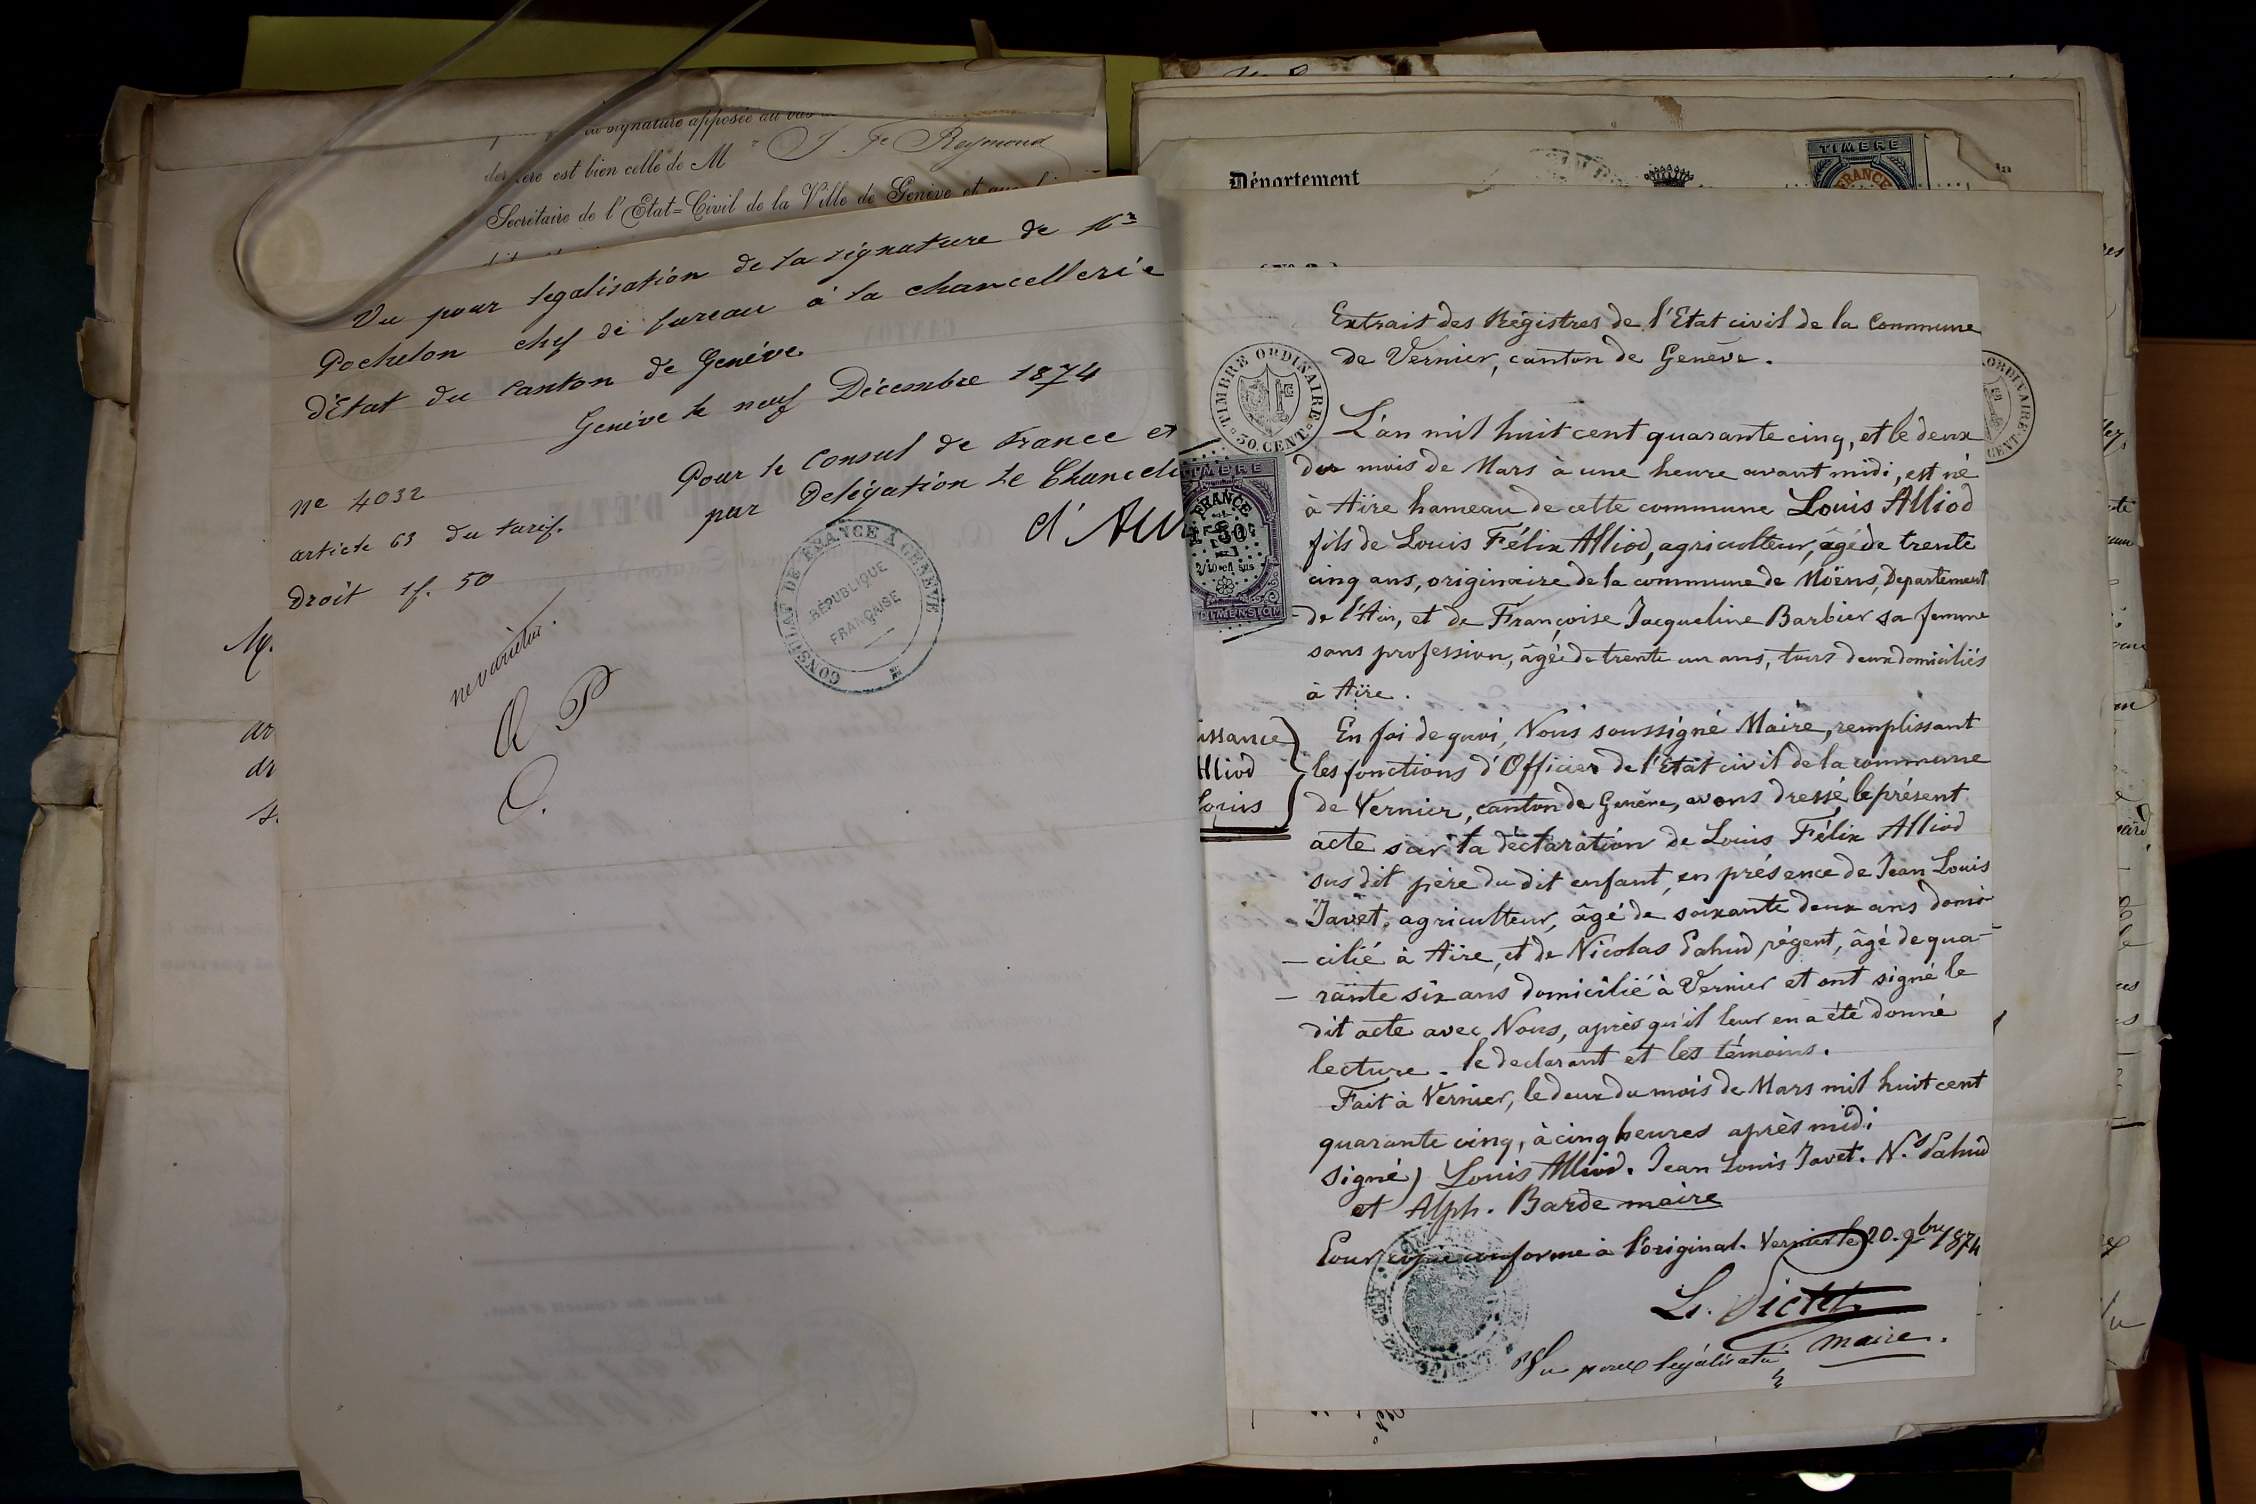 la signature apposée au bas
dernere est bien celle de M J. Fs Reymond
Secrétaire de l'Etat=Civil de la Ville de Genève et que
Vu pour legalisation de la signature de Mr
Pochelon chef de bureau à la chancellerie
d'Etat du canton de Genève
Genève le neuf Décembre 1874
Pour le Consul de France et
par Delégation le Chancel
d'Au
No 4032
article 63 du tarif.
droit 1f. 50
CONSULAT DE FRANCE A GENÈVE
RÉPUBLIQUE
FRANÇAISE
ne varietur.
A P
C.
My.
ar
dr
Département
TIMBRE
FRANCE
Extrait des Régistres de l'Etat civil de la Commune
de Vernier, canton de Genève.
TIMBRE ORDINAIRE
50 CENT.
ORDINAIRE
CENT.
TIMBRE
FRANCE
50
2/10 en sus
DIMENSION
L'an mil huit cent quarante cinq, et le deux
du mois de Mars à une heure avant midi, est né
à Aïre hameau de cette commune Louis Alliod
fils de Louis Félix Alliod, agriculteur, âgé de trente
cinq ans, originaire de la commune de Moëns, Departement
de l'Ain, et de Françoise Jacqueline Barbier sa femme
sans profession, âgée de trente un ans, tous deux domiciliés
à Aïre.
issance
lliod
Louis
En foi de quoi, Nous soussigné Maire, remplissant
les fonctions d'Officier de l'Etat civil de la commune
de Vernier, canton de Genève, avons dressé le présent
acte sur la déclaration de Louis Félix Alliod
sus dit père du dit enfant, en présence de Jean Louis
Javet, agriculteur, âgé de soixante deux ans domi-
- cilié à Aïre, et de Nicolas Pahud, régent, âgé de qua-
- rante six ans domicilié à Vernier et ont signé le
dit acte avec Nous, après qu'il leur en a été donné
lecture. le declarant et les témoins.
Fait à Vernier, le deux du mois de Mars mil huit cent
quarante cinq, à cinq heures après midi
signé) Louis Alliod. Jean Louis Javet. Ns Pahud
et Alph. Barde maire
Pour copie conforme à l'original. Vernier le 20. 9bre 1874
Ls. Pictet
maire.
Vu pour légalisatn